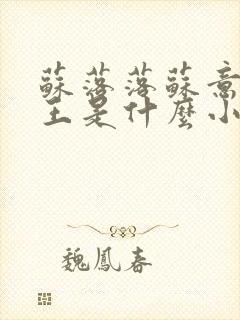 蘇落落蘇意
王是什麼小
魏鳳春